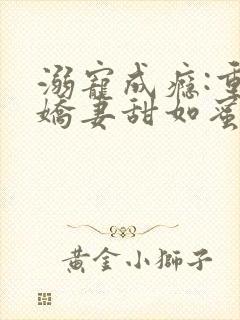 溺寵成癮:重
嬌妻甜如蜜
黃金小獅子